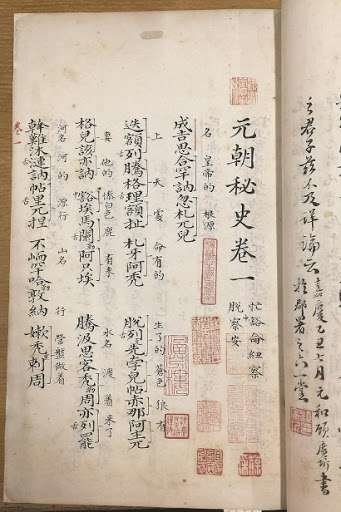 之君子茲不及詳論云 嘉慶乙丑七月元和顧廣圻書
於郡署之六一堂
元朝秘史卷一
忙豁侖紐察
脫察安
名 皇帝的 根源
成吉思合罕訥忽札兀兒
上 天 處 命有的 生了的 蒼色 狼 有
迭額列騰格理額扯 札牙阿禿 脫列先孛兒帖赤那阿主兀
妻 他的 慘白色 鹿 有來 水名 渡 着 來了
格兒該亦訥 豁埃馬闌勒阿只埃 騰汲思客禿周亦列罷
河名 河的 源行 山名 行 營盤做着
斡難沐漣訥帖里兀捏 不峏罕哈勒敦納 嫩禿剌周
卷一